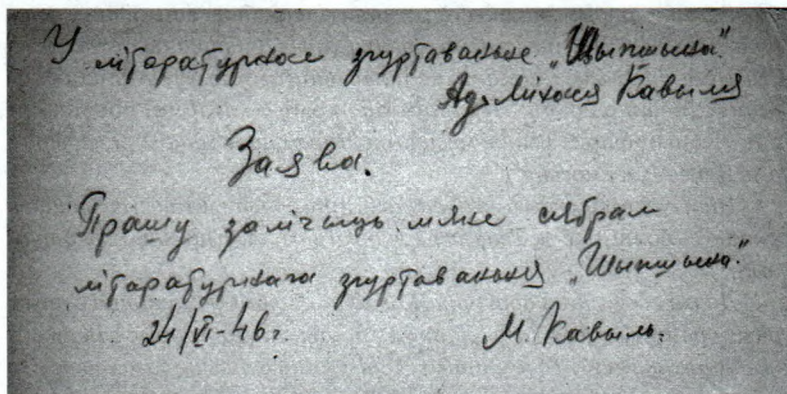 У літаратурнае згуртаваньне „Шыпшына“.
Ад Міхася Кавыля
Заява.
Прашу залічыць мяне сябрам
літаратурнага згуртаваньня „Шыпшына“.
24/VI-46 г. М. Кавыль.